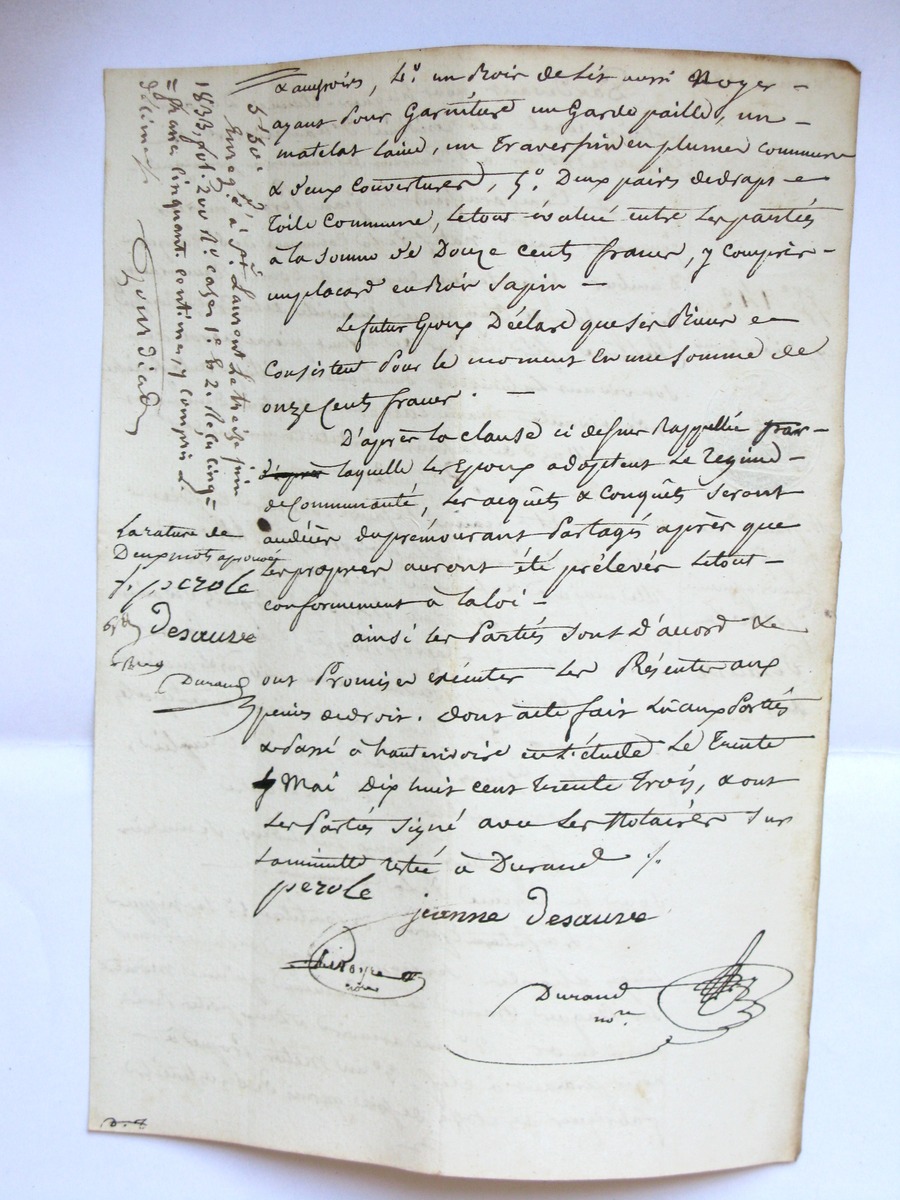 un Bois de Lit aussi Noyer —
ayant Pour Garniture un Garde paille, un —
matelat Laine, un Traversin en plumes commune
& deux Couvertures, 5°. Deux paires de draps
Toile Commune, Le tout évalué entre Les parties
à la somme de Douze cents francs, y compris —
un placard en Bois Sapin —
Le futur Epoux Déclare que ses Biens
Consistent Pour le moment En une somme de
onze Cents francs. —
D'après la clause ci dessus Rappellée par —
laquelle Les Epoux adoptent Le regime —
de Communauté, Les acquêts & Conquêts seront
au décès du prémourant Partagés après que
Les propres auront été prélevés Le tout —
conformement à la loi —
ainsi les Parties sont D'accord &
ont Promis executer Les Présentes aux
peines de droit. Dont acte fait Lu aux Parties
& Passé à en L'étude Le Trente
Mai Dix huit cent trente Trois, & ont
Les Parties Signé avec Les Notaires Sur
La minutte restée à Durand ./.
perole
jeanne Desauve
Durand
nore
5 50c
Enreg.é à St. Laurent Le treize juin
1833, fol. 200 Ro. cases 1e. & 2e. Reçu cinq
francs cinquante centimes, y compris L.
décime
La rature de
Deux mots aprouvée
perole
Desauve
Durand